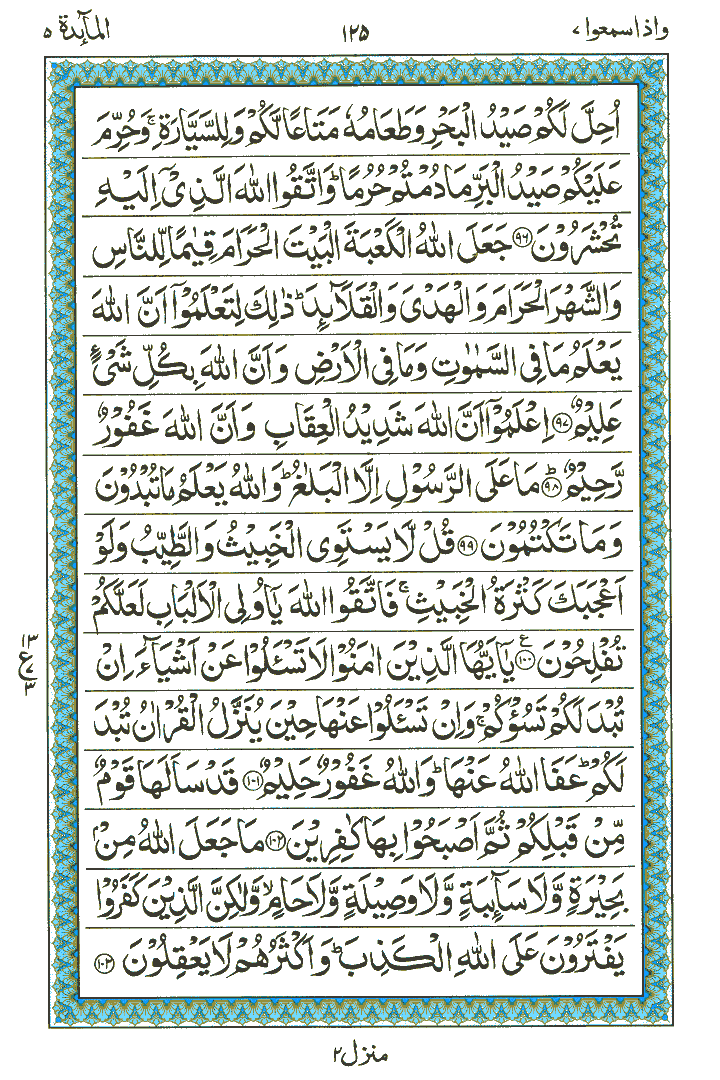 واذاسمعوا ٧
١٢٥
المآٮِٕدة ٥
اُحِلَّ لَكُمۡ صَيۡدُ الۡبَحۡرِ وَطَعَامُهٗ مَتَاعًا لَّكُمۡ وَلِلسَّيَّارَةِ‌ ۚ وَحُرِّمَ
عَلَيۡكُمۡ صَيۡدُ الۡبَرِّ مَا دُمۡتُمۡ حُرُمًا‌ ؕ وَاتَّقُوا اللّٰهَ الَّذِىۡۤ اِلَيۡهِ
تُحۡشَرُوۡنَ ﴿٩٦﴾ جَعَلَ اللّٰهُ الۡكَعۡبَةَ الۡبَيۡتَ الۡحَـرَامَ قِيٰمًا لِّـلنَّاسِ
وَالشَّهۡرَ الۡحَـرَامَ وَالۡهَدۡىَ وَالۡقَلَاۤٮِٕدَ‌ ؕ ذٰ لِكَ لِتَعۡلَمُوۡۤا اَنَّ اللّٰهَ
يَعۡلَمُ مَا فِى السَّمٰوٰتِ وَمَا فِى الۡاَرۡضِ وَاَنَّ اللّٰهَ بِكُلِّ شَىۡءٍ
عَلِيۡمٌ ﴿٩٧﴾ اِعۡلَمُوۡۤا اَنَّ اللّٰهَ شَدِيۡدُ الۡعِقَابِ وَاَنَّ اللّٰهَ غَفُوۡرٌ
رَّحِيۡمٌ ؕ ﴿٩٨﴾ مَا عَلَى الرَّسُوۡلِ اِلَّا الۡبَلٰغُ‌ ؕ وَاللّٰهُ يَعۡلَمُ مَا تُبۡدُوۡنَ
وَمَا تَكۡتُمُوۡنَ ﴿٩٩﴾ قُلْ لَّا يَسۡتَوِى الۡخَبِيۡثُ وَالطَّيِّبُ وَلَوۡ
اَعۡجَبَكَ كَثۡرَةُ الۡخَبِيۡثِ‌ ۚ فَاتَّقُوا اللّٰهَ يٰۤاُولِى الۡاَلۡبَابِ لَعَلَّكُمۡ
تُفۡلِحُوۡنَ ﴿١٠٠﴾ ع يٰۤـاَيُّهَا الَّذِيۡنَ اٰمَنُوۡا لَا تَسۡـــَٔلُوۡا عَنۡ اَشۡيَآءَ اِنۡ
١٣
ع
٧
٣
تُبۡدَ لَـكُمۡ تَسُؤۡكُمۡ‌ ۚ وَاِنۡ تَسۡـــَٔلُوۡا عَنۡهَا حِيۡنَ يُنَزَّلُ الۡقُرۡاٰنُ تُبۡدَ
لَـكُمۡ ؕ عَفَا اللّٰهُ عَنۡهَا‌ ؕ وَاللّٰهُ غَفُوۡرٌ حَلِيۡمٌ ﴿١٠١﴾ قَدۡ سَاَ لَهَا قَوۡمٌ
مِّنۡ قَبۡلِكُمۡ ثُمَّ اَصۡبَحُوۡا بِهَا كٰفِرِيۡنَ ﴿١٠٢﴾ مَا جَعَلَ اللّٰهُ مِنۡۢ
بَحِيۡرَةٍ وَّلَا سَآٮِٕبَةٍ وَّلَا وَصِيۡلَةٍ وَّلَا حَامٍ‌ ۙ وَّلٰـكِنَّ الَّذِيۡنَ كَفَرُوۡا
يَفۡتَرُوۡنَ عَلَى اللّٰهِ الۡـكَذِبَ‌ ؕ وَاَكۡثَرُهُمۡ لَا يَعۡقِلُوۡنَ ﴿١٠٣﴾
منزل ٢